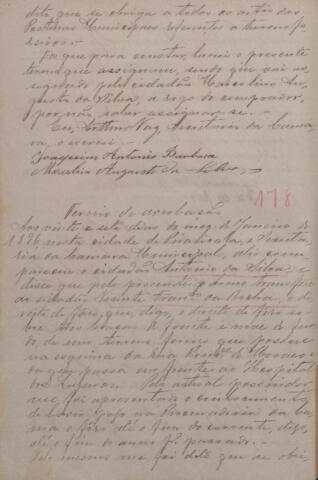 dito que se obriga a todos os artigos das
Posturas Municipaes referentes a terrenos fo-
reiros.
Do que para constar, lavrei o presente
termo que assignam, sendo que vai as-
signado pelo cidadão Marcelino Au-
gusto da Silva, a rogo do comprador,
por não saber assignar-se.
Eu, Arthur Vaz, Secretario da Cama-
ra, o escrevi.
Joaquim Antonio Barbosa
Marcelino Augusto da Silva
178
Termo de averbação
Aos vinte e sete dias do mez de Janeiro de
1896, nesta cidade de Piracicaba, e Secreta-
ria da Camara Municipal, ahi com-
pareceu o cidadão Antonio da Silva, e
disse que pelo presente termo transfere
ao cidadão Vicente da Rocha, o di-
reito de fôro que, digo, o direito de fôro so-
bre braças de frente e nove de fun-
do, de um terreno foreiro que possue
na esquina da rua de Moraes e
da que passa em frente ao Hospital
dos Lazaros. Pelo actual possuidor
me foi apresentado o conhecimento
de haver pago na Procuradoria da Ca-
mara o fôro até o fim do corrente, digo,
até o fim do anno p. passado.
Pelo mesmo me foi dito que se obri-